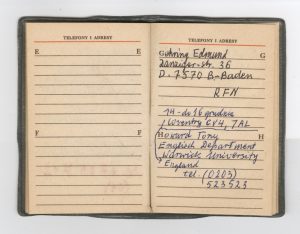 TELEFONY I ADRESY
E E
F F
TELEFONY I ADRESY
G G
Gehring Edmund
Danziger-str. 36
D. 7570 B-Baden
RFN
14-do 26 grudnia
Coventry CV4, 7AL
H H
Howard Tony
English Department
Warwick University
England
tel. (0203)
523523